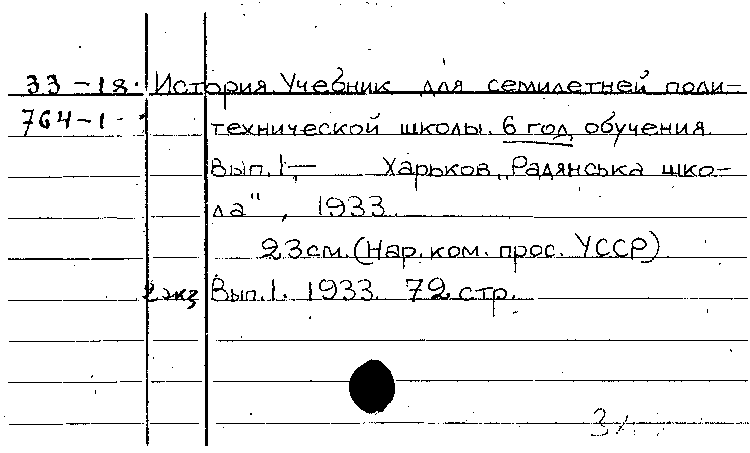 33-18. История. Учебник для семилетней поли-
764-1. технической школы. 6 год обучения.
Вып. 1,— Харьков, „Радянська шко-
ла", 1933.
23см. (Нар. ком. прос. УССР)
2 экз Вып. 1. 1933. 72 стр.